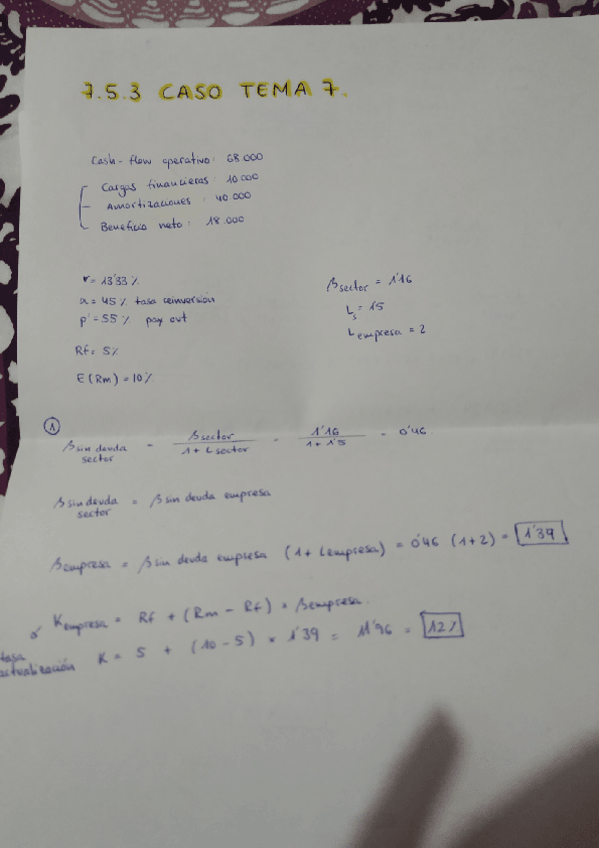 7.5.3 CASO TEMA 7.
Cash-flow operativo: 68.000
Cargas financieras: 10.000
Amortizaciones: 40.000
Beneficio neto: 18.000
r = 13'33 %
a = 45 % tasa reinversión
p = 55 % pay out
Rf = 5%
E(Rm) = 10%
βsector = 1'16
Ls = 1'5
Lempresa = 2
①
βsin deuda sector = βsector / 1 + Lsector = 1'16 / 1 + 1'5 = 0'46
βsin deuda sector = βsin deuda empresa
βempresa = βsin deuda empresa (1 + Lempresa) = 0'46 (1+2) = 1'39
Kempresa = Rf + (Rm - Rf) × βempresa.
o tasa actualización K = 5 + (10 - 5) × 1'39 = 11'96 = 12%